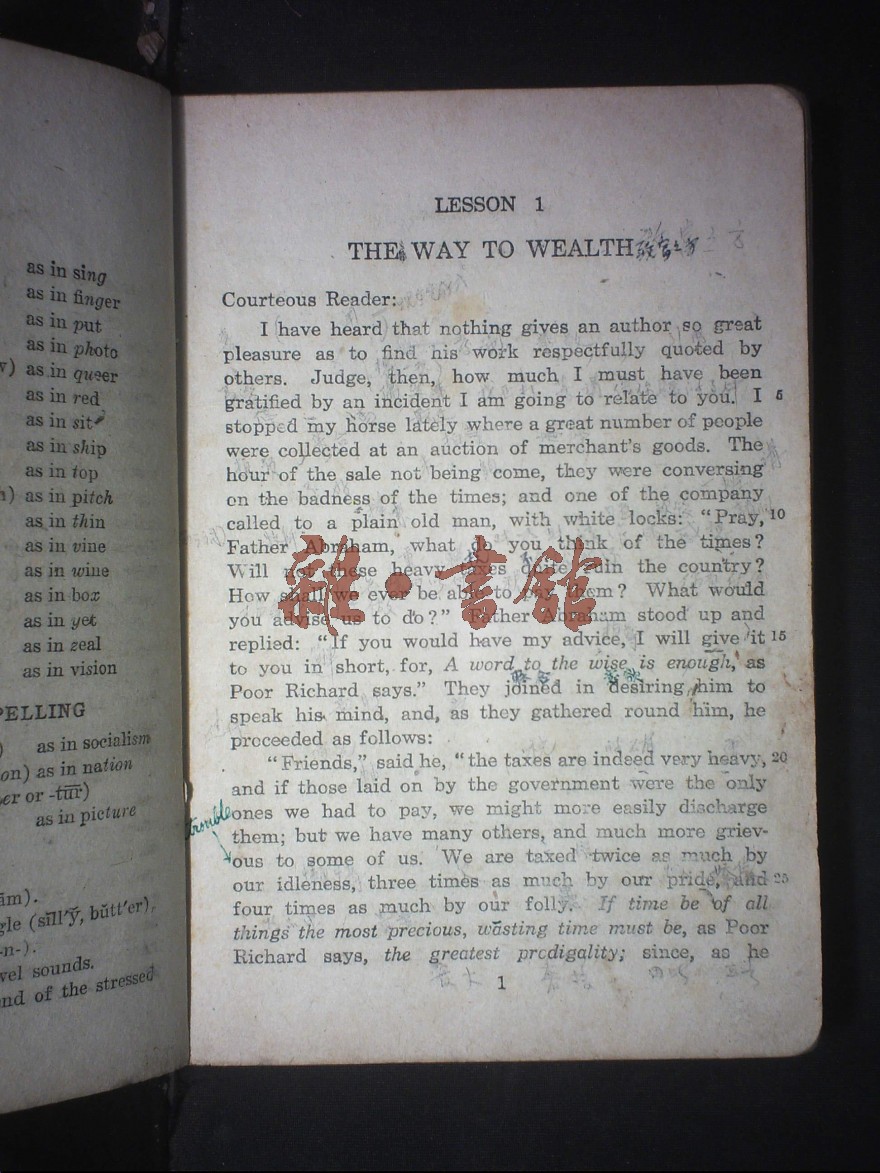 as in sing
as in finger
as in put
as in photo
as in queer
as in red
as in sit
as in ship
as in top
as in pitch
as in thin
as in vine
as in wine
as in box
as in yet
as in zeal
as in vision
PELLING
as in socialism
on) as in nation
er or -tūr)
as in picture
gle (sĭll′y̆, bŭtt′er),
-n-).
vel sounds.
nd of the stressed
LESSON 1
THE WAY TO WEALTH
Courteous Reader:
I have heard that nothing gives an author so great
pleasure as to find his work respectfully quoted by
others. Judge, then, how much I must have been
gratified by an incident I am going to relate to you. I 5
stopped my horse lately where a great number of people
were collected at an auction of merchant's goods. The
hour of the sale not being come, they were conversing
on the badness of the times; and one of the company
called to a plain old man, with white locks: "Pray, 10
Father Abraham, what do you think of the times?
Will not these heavy taxes quite ruin the country?
How shall we ever be able to pay them? What would
you advise us to do?" Father Abraham stood up and
replied: "If you would have my advice, I will give it 15
to you in short, for, A word to the wise is enough, as
Poor Richard says." They joined in desiring him to
speak his mind, and, as they gathered round him, he
proceeded as follows:
"Friends," said he, "the taxes are indeed very heavy, 20
and if those laid on by the government were the only
trouble
ones we had to pay, we might more easily discharge
them; but we have many others, and much more griev-
ous to some of us. We are taxed twice as much by
our idleness, three times as much by our pride, and 25
four times as much by our folly. If time be of all
things the most precious, wasting time must be, as Poor
Richard says, the greatest prodigality; since, as he
1
雜·書館